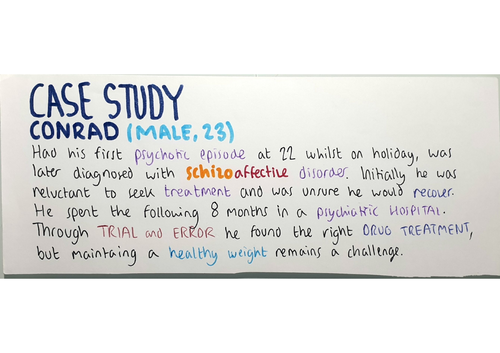 CASE STUDY
CONRAD (MALE, 23)
Had his first psychotic episode at 22 whilst on holiday, was
later diagnosed with schizoaffective disorder. Initially he was
reluctant to seek treatment and was unsure he would recover.
He spent the following 8 months in a psychiatric HOSPITAL.
Through TRIAL and ERROR he found the right DRUG TREATMENT,
but maintaing a healthy weight remains a challenge.